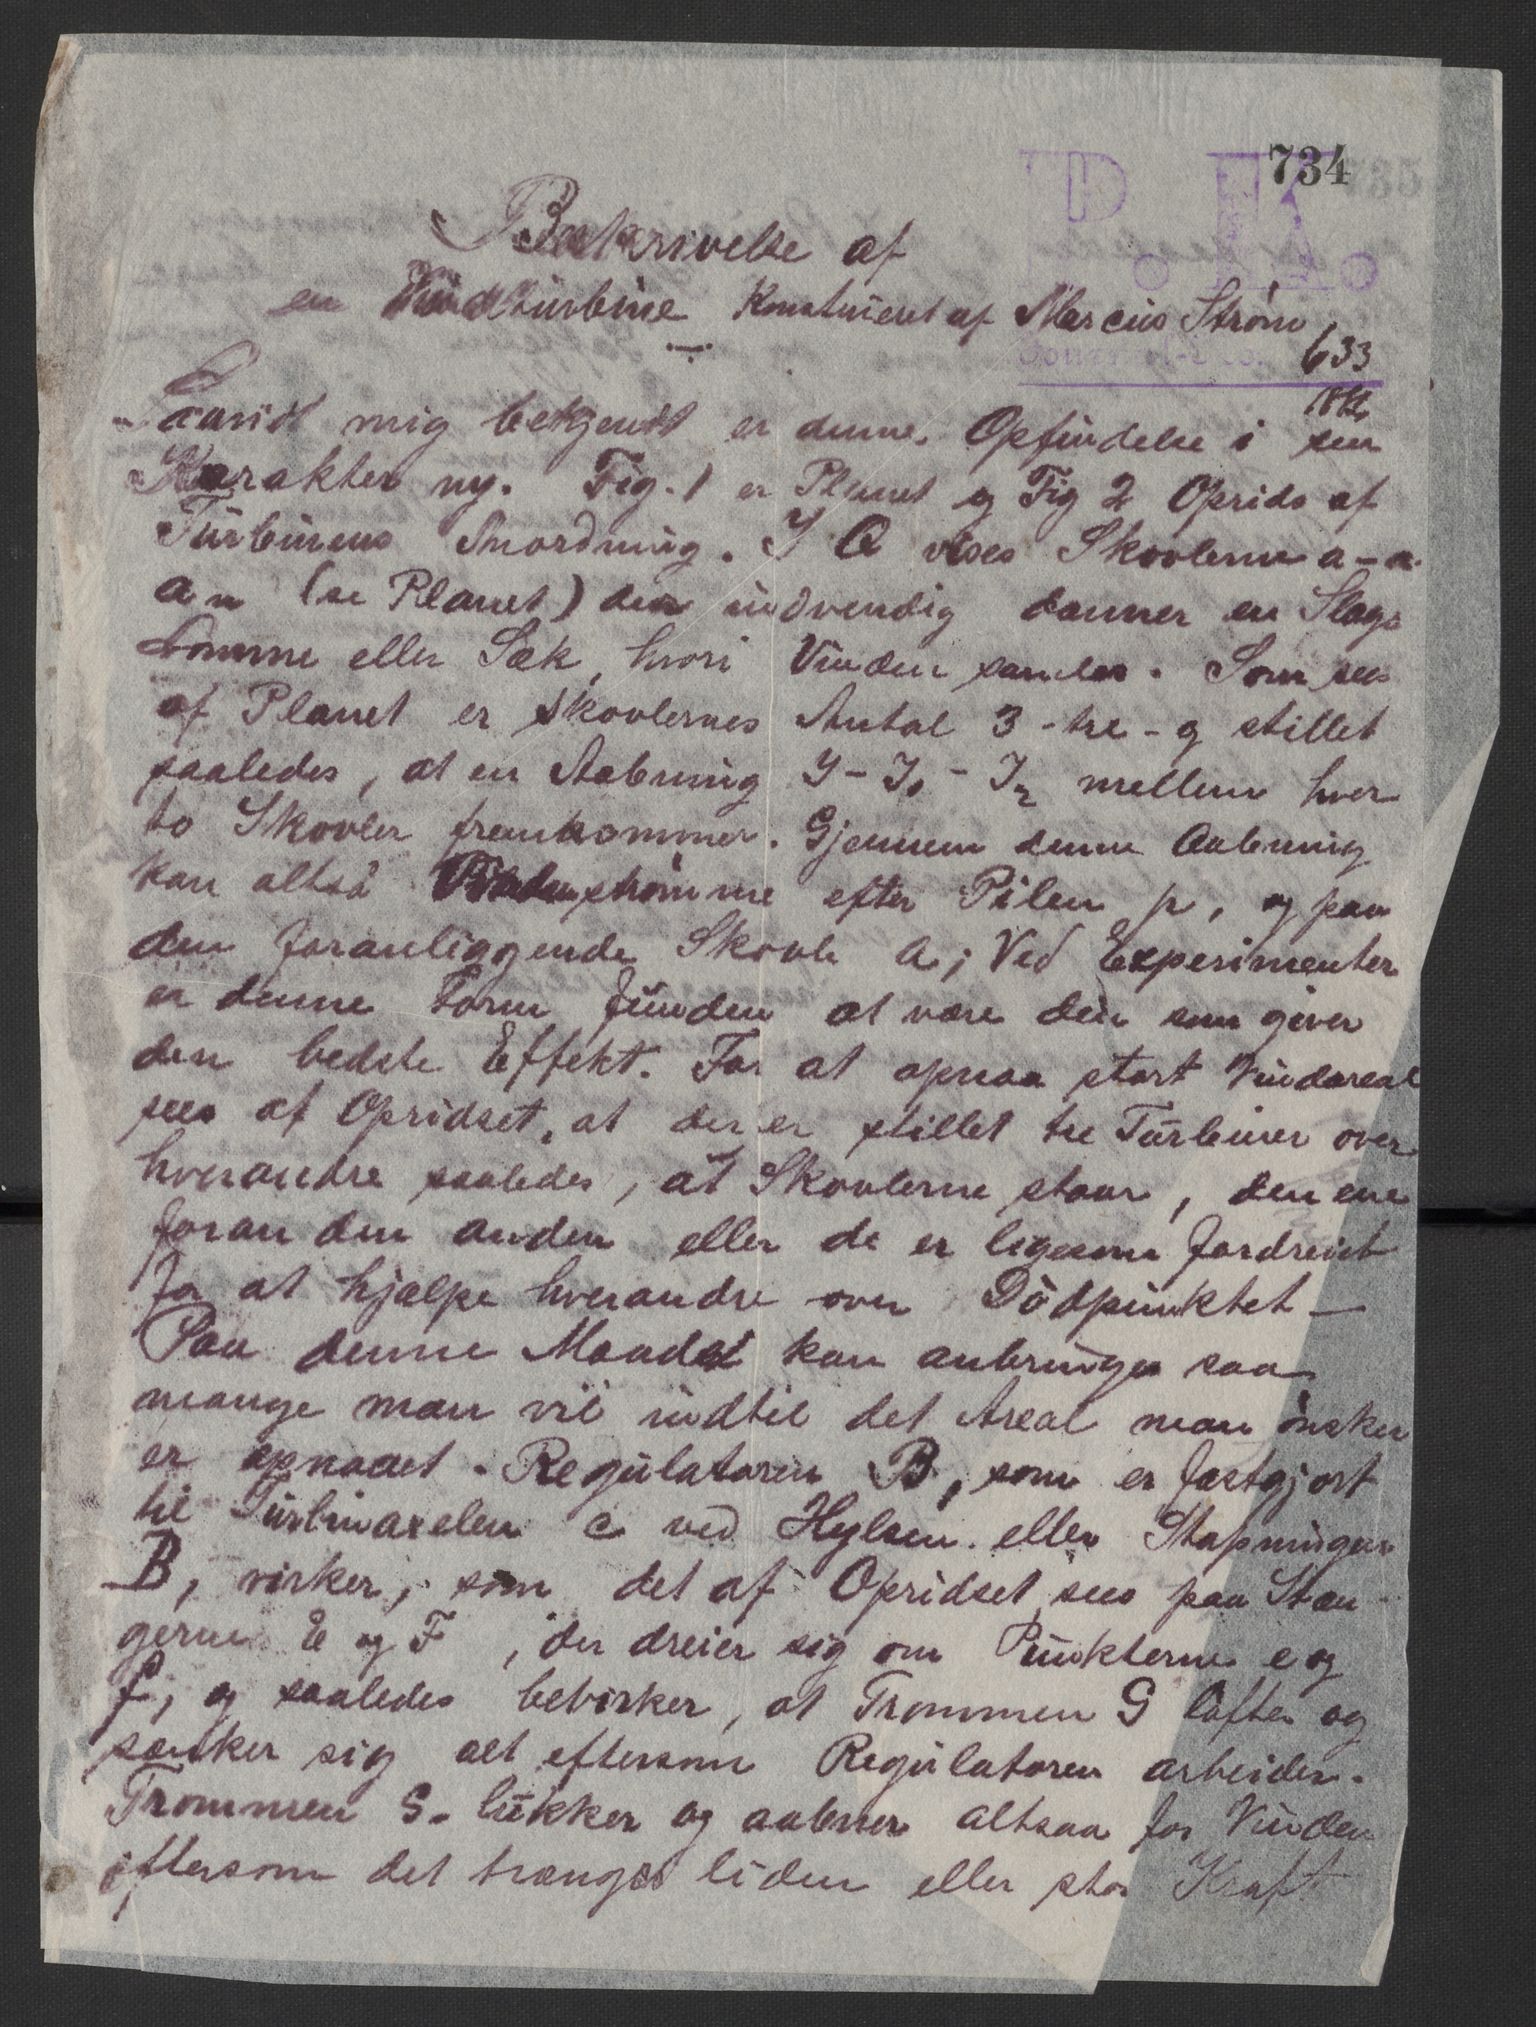 734
P. K.
Beskrivelse af
en Vindturbine Konstrueret af Marcius Strøm,
633
Saavidt mig bekjendt er denne Opfindelse i sin
Karakter ny. Fig. 1 er Planet og Fig 2 Oprids af
Turbinens Anordning. I A vises Skovlerne a-a
a n (se Planet) der indvendig danner en Slags
Lomme eller Sæk, hvori Vinden samles. Som sees
af Planet er Skovlernes Antal 3 - tre - og stillet
saaledes, at en Aabning I - I, - I2 mellem hver
to Skovler fremkommer. Gjennem denne Aabning
kan altså Vinden strømme efter Pilen p, og paa
den foranliggende Skovle a; Ved Experimenter
er denne Form funden at være den som giver
den bedste Effekt. For at opnaa stort Vindareal
sees af Opridset, at der er stillet tre Turbiner over
hverandre saaledes, at Skovlerne staar, den ene
foran den anden eller de er ligesom fordreiet
for at hjælpe hverandre over Dödpunktet -
Paa denne Maade kan anbringes saa
mange man vil indtil det Areal man ønsker
er opnaaet. Regulatoren B, som er fastgjort
til Turbinaxelen c ved Hylsen eller Støpningen
B, virker, som det af Opridset sees paa Stæn-
gerne E og F, der dreier sig om Punkterne e og
f, og saaledes bevirker, at Trommen G löfter og
sænker sig alt eftersom Regulatoren arbeider.
Trommen G. lukker og aabner altsaa for Vinden
eftersom det trænges liden eller stor Kraft